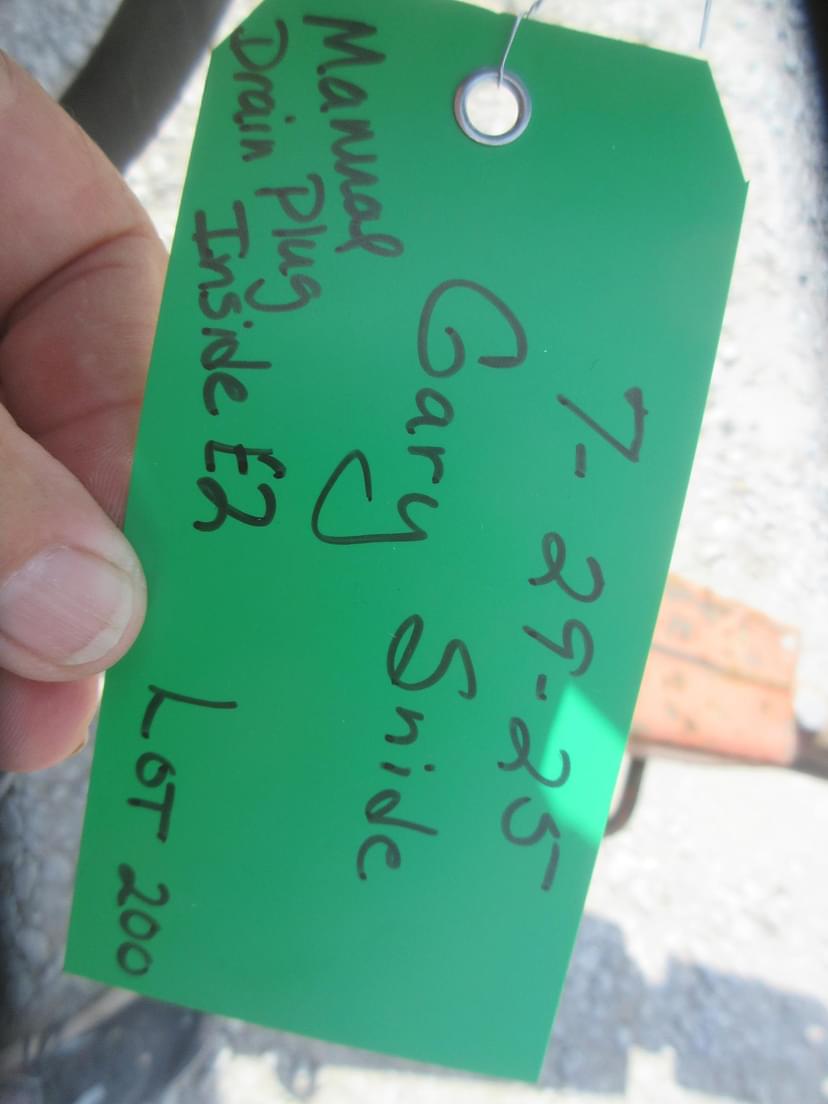 7-29-25
Gary Snide
Manual
Drain Plug
Inside E2
LOT 200